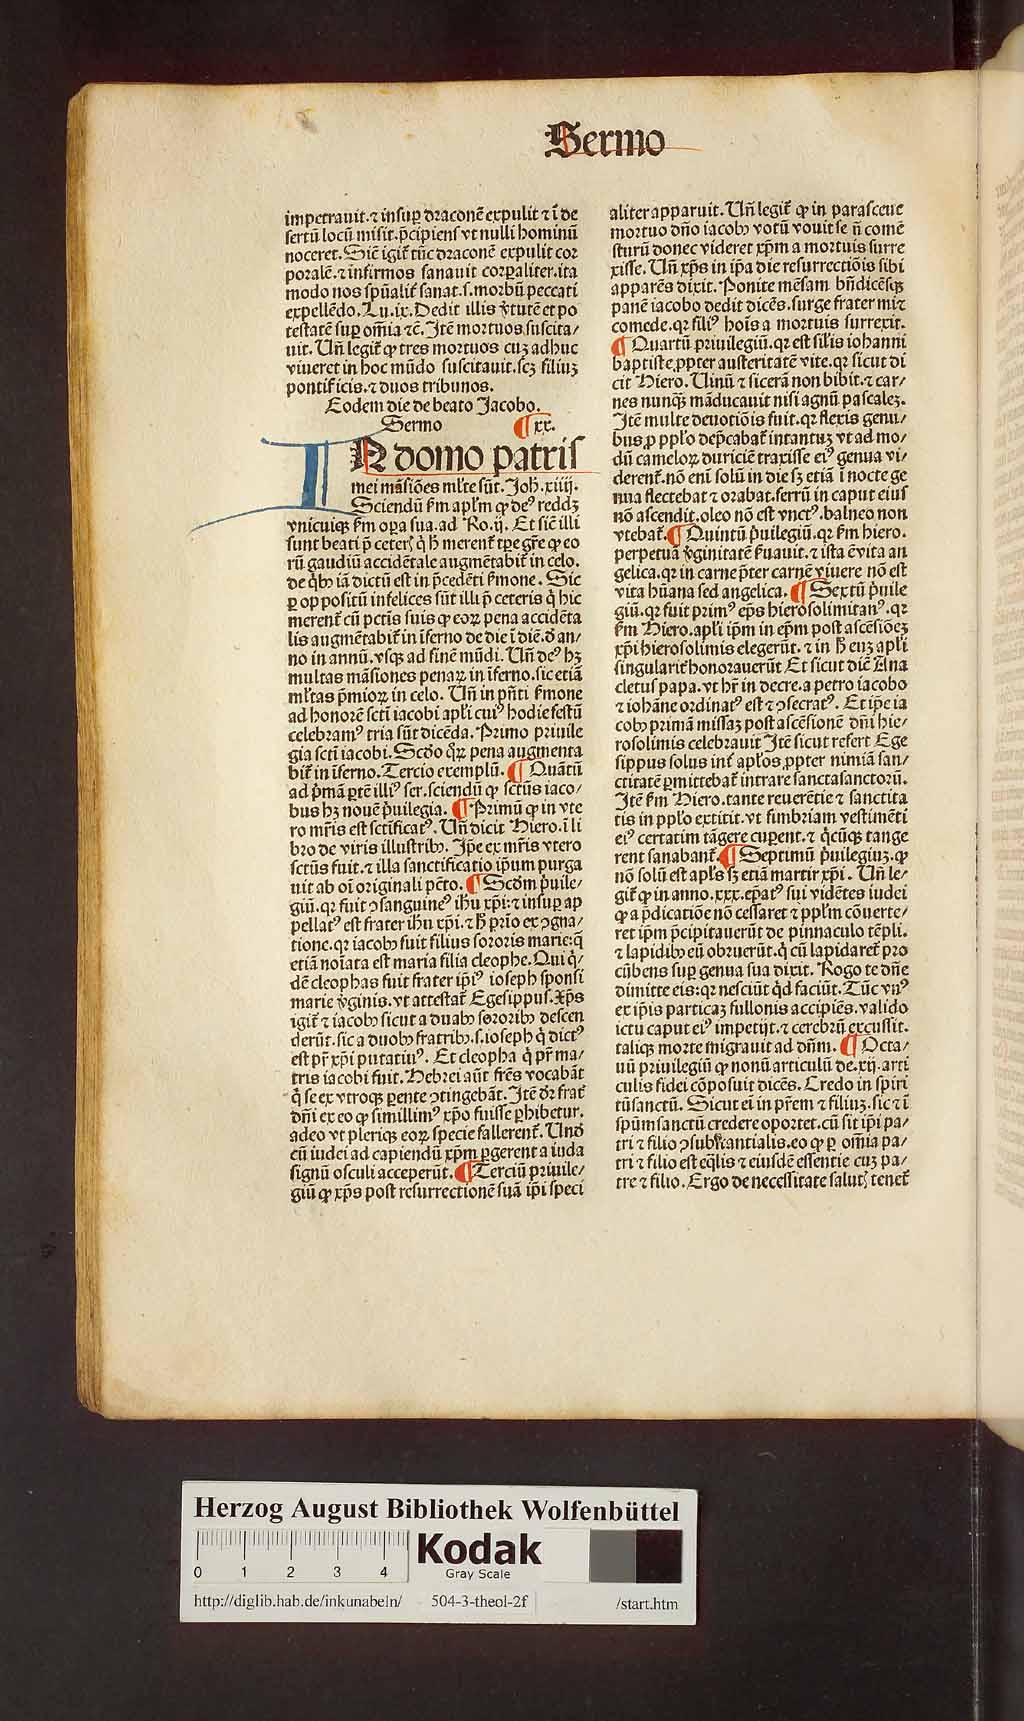 Sermo
impetrauit.⁊ insuꝑ draconē expulit ⁊ ī de
sertū locū misit.p̄cipiens vt nulli hominū
noceret. Sic̄ igit̄ tūc draconē expulit cor
poralē.⁊ infirmos sanauit corꝑaliter.ita
modo nos sp̄ualit̄ sanat.s.morbū peccati
expellēdo. Lu.ix. Dedit illis v̄tutē et po
testatē suꝑ om̄ia ⁊c̄. Itē mortuos suscita/
uit. Vn̄ legit̄ ꝙ tres mortuos cuꝫ adhuc
viueret in hoc mūdo suscitauit.scꝫ filiuꝫ
pontificis.⁊ duos tribunos.
Eodem die de beato Jacobo.
Sermo ¶ xx.
IN domo patris
mei māsiōes ml̄te sūt. Joh̄.xiiij.
Sciendū s̄m apl̄m ꝙ deꝰ reddꝫ
vnicuiqꝫ s̄m oꝑa sua.ad Ro.ij. Et sic̄ illi
sunt beati p̄ ceterꝭ q̇ h̄ merent̄ tꝑe gr̄e ꝙ eo
rū gaudiū accidētale augmētabit̄ in celo.
de q̇bꝰ iā dictū est in p̄cedēti s̄mone. Sic
ꝑ oppositū infelices sūt illi p̄ ceteris q̇ hic
merent̄ cū pctis suis ꝙ eoꝝ pena accidēta
lis augmētabit̄ in īferno de die ī diē.d̄ an/
no in annū.vsqꝫ ad finē mūdi. Vn̄ deꝰ hꝫ
multas māsiones penaꝝ in īferno.sic etiā
ml̄tas p̄mioꝝ in celo. Vn̄ in pn̄ti s̄mone
ad honorē scti iacobi apl̄i cuiꝰ hodie festū
celebramꝰ tria sūt dicēda. Primo priuile
gia scti iacobi. Scd̄o q̄ꝝ pena augmenta
bit̄ in īferno. Tercio exemplū. ¶ Quātū
ad p̄mā ꝑtē illiꝰ ser.sciendū ꝙ sctūs iaco/
bus hꝫ nouē p̄uilegia. ¶ Primū ꝙ in vte
ro mr̄is est sctificatꝰ. Vn̄ dicit Hiero.ī li
bro de viris illustribꝰ. Ip̄e ex mr̄is vtero
sctūs fuit.⁊ illa sanctificatio ip̄um purga
uit ab oī originali pcc̄to. ¶ Scd̄m p̄uile/
giū.qꝛ fuit ꝯsanguineꝰ ih̄u xp̄i:⁊ insuꝑ ap
pellatꝰ est frater ih̄u xp̄i.⁊ h̄ p̄rio ex ꝯgna/
tione.qꝛ iacobꝰ fuit filius sororis marie:q̄
etiā noīata est maria filia cleophe. Qui q̇/
dē cleophas fuit frater ip̄iꝰ ioseph sponsi
marie v̄ginis.vt attestat̄ Egesippus. Xp̄s
igit̄ ⁊ iacobꝰ sicut a duabꝰ sororibꝰ descen
derūt.sic a duobꝰ fratribꝰ.s.ioseph q̇ dictꝰ
est pr̄ xp̄i putatiuꝰ. Et cleopha q̇ pr̄ ma/
tris iacobi fuit. Hebrei aūt fr̄es vocabāt
q̇ se ex vtroqꝫ ꝑente ꝯtingebāt. Itē dr̄ frat̄
dn̄i ex eo ꝙ simillimꝰ xp̄o fuisse ꝑhibetur.
adeo vt pleriqꝫ eoꝝ specie fallerent̄. Vnd̄
cū iudei ad capiendū xp̄m ꝑgerent a iuda
signū osculi acceperūt. ¶ Terciū priuile/
giū ꝙ xp̄s post resurrectionē suā ip̄i speci
aliter apparuit. Vn̄ legit̄ ꝙ in parasceue
mortuo dn̄o iacobꝰ votū vouit se n̄ comē
sturū donec videret xp̄m a mortuis surre
xisse. Vn̄ xp̄s in ip̄a die resurrectiōis sibi
apparēs dixit. Ponite mēsam bn̄dicēsqꝫ
panē iacobo dedit dicēs.surge frater mi ⁊
comede.qꝛ filiꝰ hoīs a mortuis surrexit.
¶ Quartū priuilegiū.qꝛ est sil̄is iohanni
baptiste ꝓpter austeritatē vite.qꝛ sicut di
cit Hiero. Vinū ⁊ sicerā non bibit.⁊ car/
nes nunqꝫ māducauit nisi agnū pascaleꝫ.
Itē multe deuotiōis fuit.qꝛ flexis genu/
bus ꝓ pplo dep̄cabat̄ intantuꝫ vt ad mo/
dū cameloꝝ duriciē traxisse eiꝰ genua vi/
derent̄.nō eni solū in die sꝫ etiā ī nocte ge
nua flectebat ⁊ orabat.ferrū in caput eius
nō ascendit.oleo nō est vnctꝰ.balneo non
vtebat̄. ¶ Quintū p̄uilegiū.qꝛ s̄m hiero.
perpetuā v̄ginitatē s̄uauit.⁊ ista ē vita an
gelica.qꝛ in carne p̄ter carnē viuere nō est
vita hūana sed angelica. ¶ Sextū p̄uile
giū.qꝛ fuit primꝰ ep̄s hierosolimitanꝰ.qꝛ
s̄m Hiero.apl̄i ip̄m in ep̄m post ascēsiōeꝫ
xp̄i hierosolimis elegerūt.⁊ in h̄ euꝫ apl̄i
singularit̄ honorauerūt Et sicut dic̄ Ana
cletus papa.vt hr̄ in decre.a petro iacobo
⁊ iohāne ordinatꝰ est ⁊ ꝯsecratꝰ. Et ip̄e ia
cobꝰ primā missaꝫ post ascēsionē dn̄i hie/
rosolimis celebrauit Itē sicut refert Ege
sippus solus int̄ apl̄os ꝓpter nimiā san/
ctitatē ꝑmittebat̄ intrare sanctasanctorū.
Itē s̄m Hiero.tante reuerētie ⁊ sanctita
tis in pplo extitit.vt fimbriam vestimēti
eiꝰ certatim tāgere cuꝑent.⁊ q̇cūqꝫ tange
rent sanabant̄. ¶ Septimū p̄uilegiuꝫ.ꝙ
nō solū est apl̄s sꝫ etiā martir xp̄i. Vn̄ le/
git̄ ꝙ in anno.xxx.ep̄atꝰ sui vidētes iudei
ꝙ a p̄dicatiōe nō cessaret ⁊ pplm cōuerte/
ret ip̄m p̄cipitauerūt de pinnaculo tēpli.
⁊ lapidibꝰ eū obruerūt.q̇ cū lapidaret̄ pro
cūbens suꝑ genua sua dixit. Rogo te dn̄e
dimitte eis:qꝛ nesciūt qd̄ faciūt. Tūc vnꝰ
ex ip̄is particaꝫ fullonis accipiēs.valido
ictu caput eiꝰ impetijt.⁊ cerebrū excussit.
taliqꝫ morte migrauit ad dn̄m. ¶ Octa/
uū priuilegiū ꝙ nonū articulū de.xij.arti
culis fidei cōposuit dicēs. Credo in spiri
tū sanctū. Sicut ei in pr̄em ⁊ filiuꝫ.sic ⁊ ī
sp̄um sanctū credere oportet.cū sit ip̄i pa/
tri ⁊ filio ꝯsubstantialis.eo ꝙ ꝑ om̄ia pa/
tri ⁊ filio est eq̄lis ⁊ eiusdē essentie cuꝫ pa/
tre ⁊ filio. Ergo de necessitate salutꝭ tenet̄
Herzog August Bibliothek Wolfenbüttel
0 1 2 3 4
Kodak
Gray Scale
http://diglib.hab.de/inkunabeln/ 504-3-theol-2f /start.htm